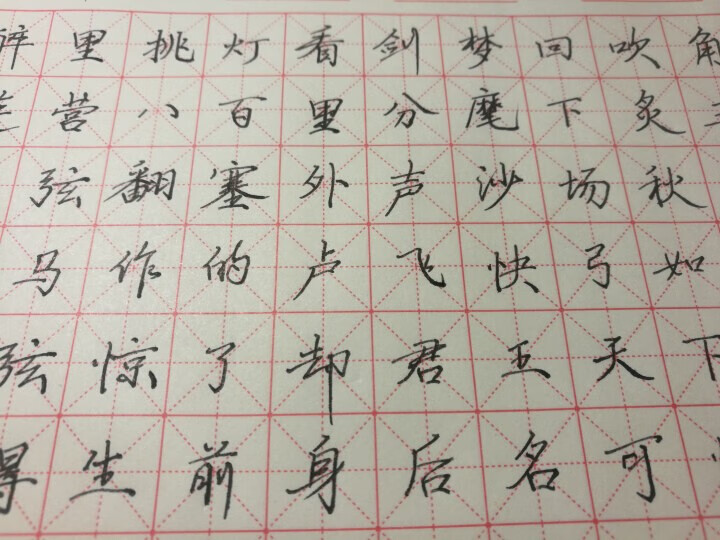 醉里挑灯看剑梦回吹角
营八百里分麾下炙
弦翻塞外声沙场秋
马作的卢飞快弓如
弦惊了却君王天下
得生前身后名可